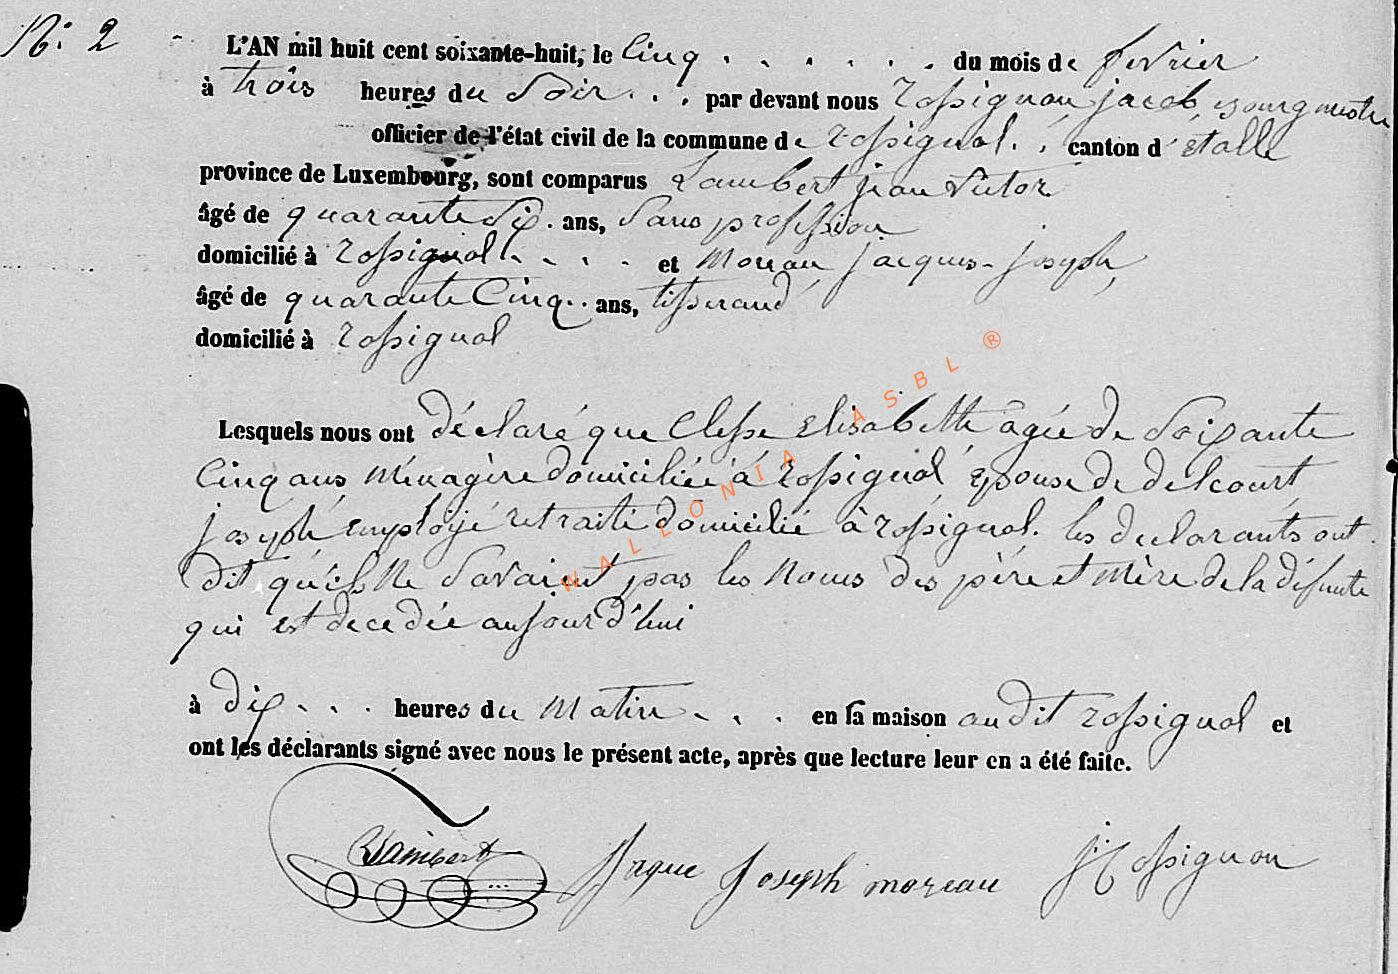 N: 2
L'AN mil huit cent soixante-huit, le Cinq . . . . . . du mois de fevrier
à trois heures du Soir . . . par devant nous rossignon jacob, bourgmestre
officier de l'état civil de la commune de rossignol . . canton d'étalle
province de Luxembourg, sont comparus Lambert jean victor
âgé de quarante Six . ans, Sans profession
domicilié à rossignol . . . . et moreau, jacques-joseph,
âgé de quarante Cinq . . ans, tisserand
domicilié à rossignol
Lesquels nous ont déclaré que Clesse elisabette âgée de Soixante
Cinq ans ménagère domiciliée à rossignol épouse de delcourt
joseph employé retraité domicilié à rossignol. les declarants ont
dit qu'ils ne Savaient pas les noms des père et mère de la défunte
qui est decedée aujourd'hui
à dix . . . heures du matin . . . en sa maison au dit rossignol et
ont les déclarants signé avec nous le présent acte, après que lecture leur en a été faite.
Lambert Jaque Joseph moreau j. rossignon
WALLONIA ASBL ®